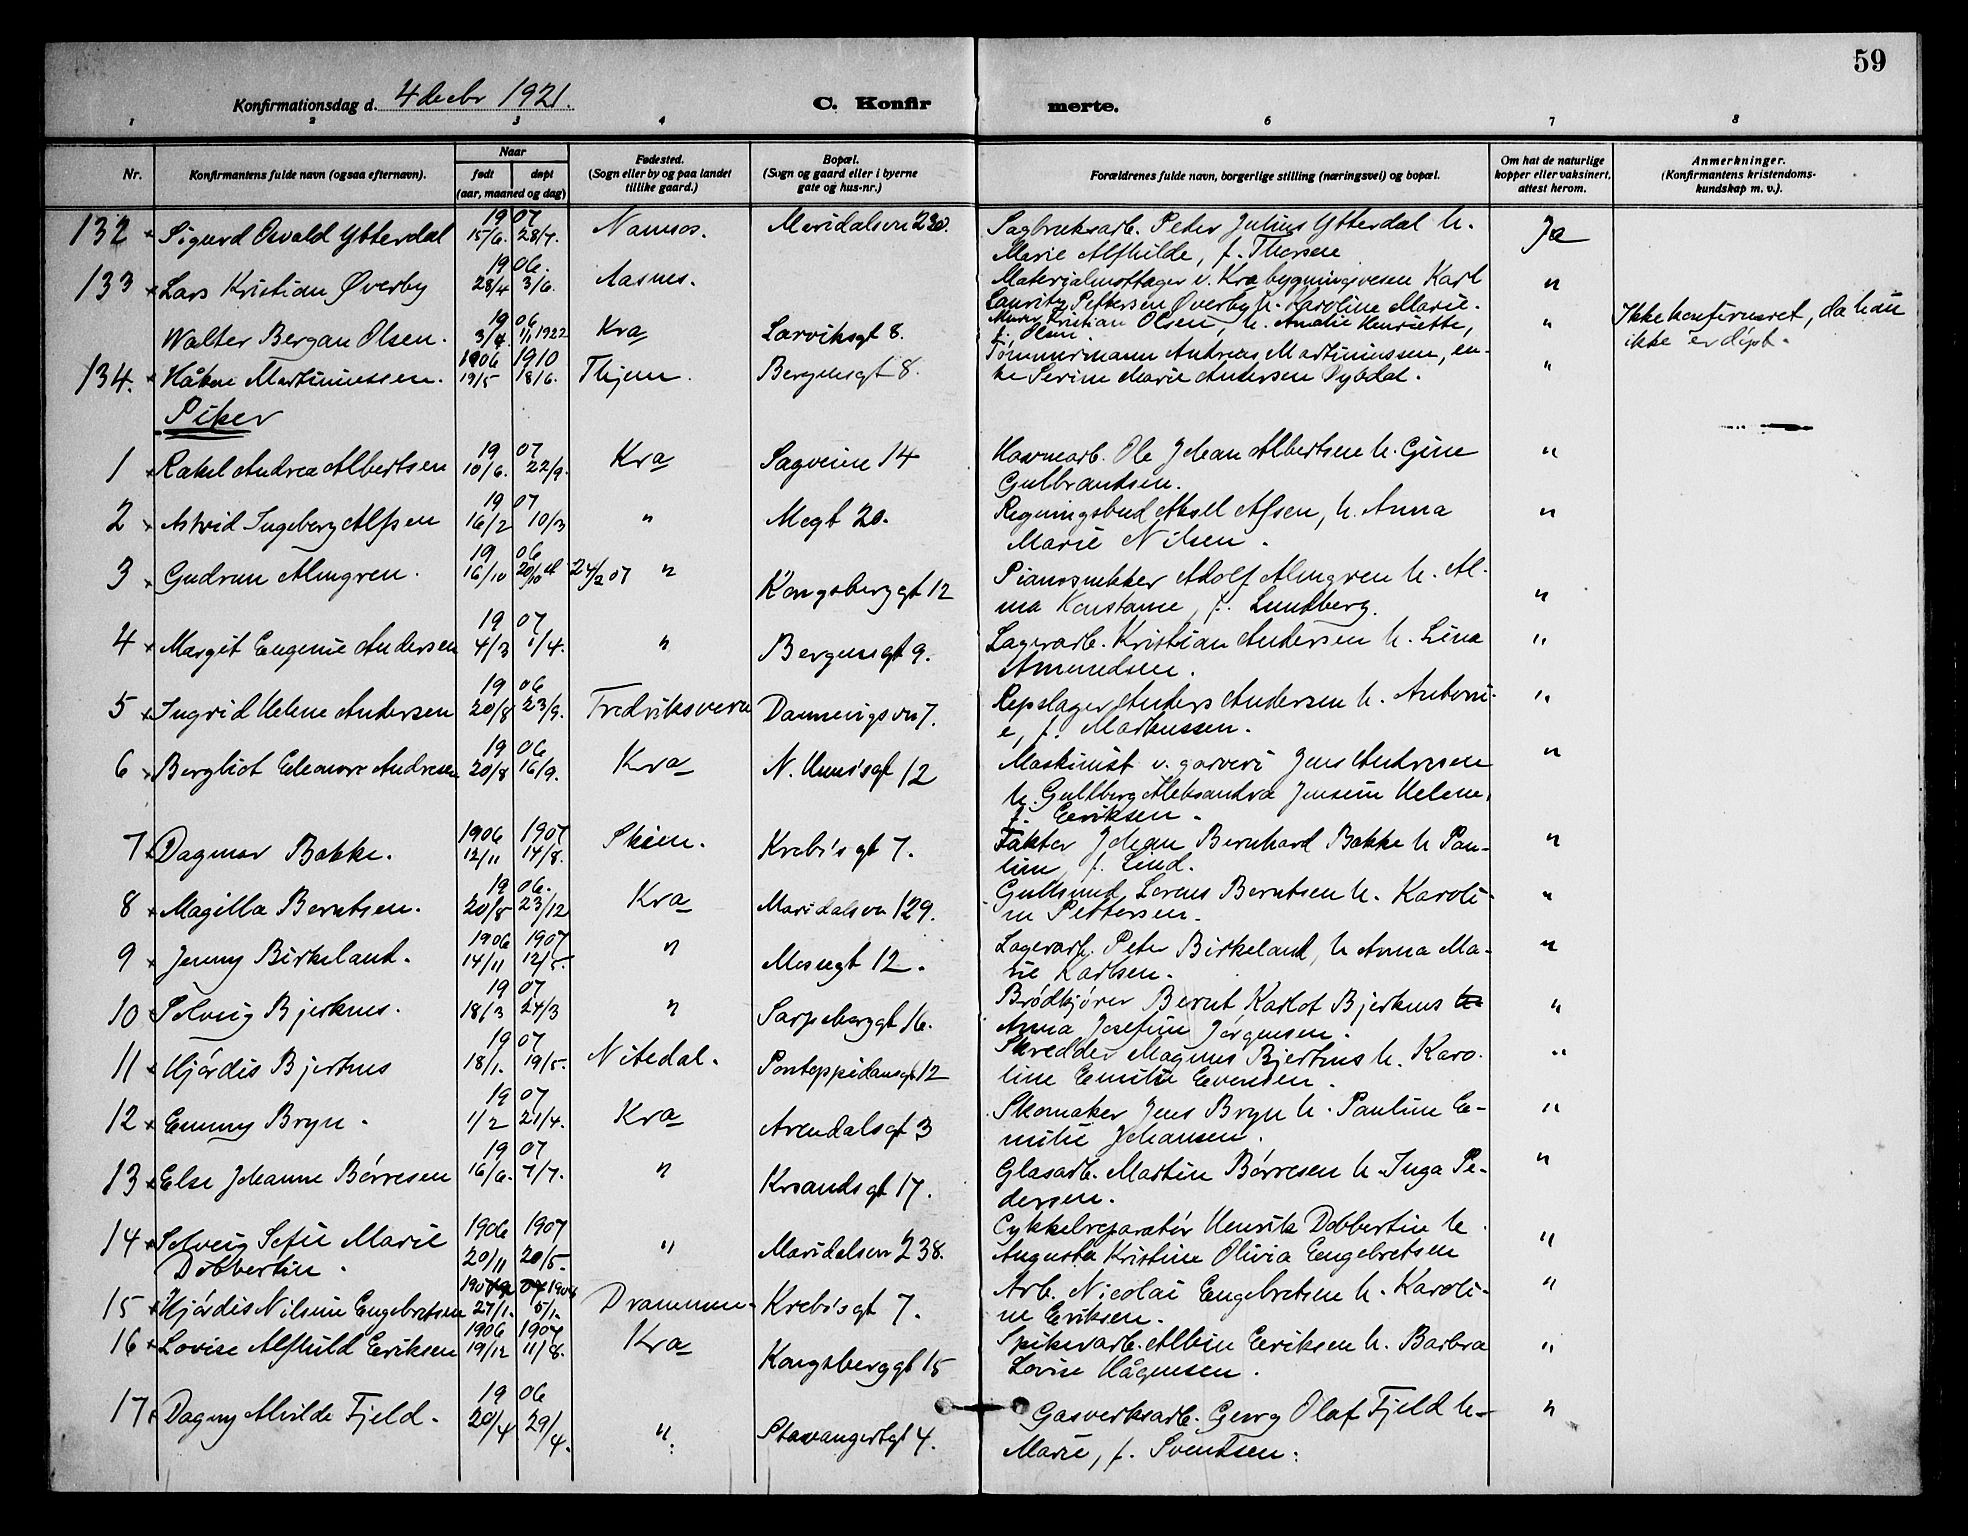 59
Konfirmationsdag d. 4 decbr 1921.
C. Konfir merte.
1 2 3 4 6 7 8
Nr.
Konfirmantens fulde navn (ogsaa efternavn).
Naar
født døpt
(aar, maaned og dag)
Fødested.
(Sogn eller by og paa landet
tillike gaard.)
Bopæl.
(Sogn og gaard eller i byerne
gate og hus-nr.)
Forældrenes fulde navn, borgerlige stilling (næringsvei) og bopæl.
Om hat de naturlige
kopper eller vaksinert,
attest herom.
Anmerkninger.
(Konfirmantens kristendoms-
kundskap m. v.).
19 07
132 Sigurd Osvald Ytterdal 15/6. 28/7. Namsos. Maridalsvn 230. Sagbruksarb. Peter Julius Ytterdal h. Ja
Marie Alfhilde, f. Thorsen
19 06.
133 Lars Kristian Øverby 28/4 3/6. Aasnes. Materjalmottager v. Kra bygningsvesen Karl "
Lauritz Pettersen Øverby h. Karoline Marie.
19 06
Walter Bergan Olsen. 3/4. 1/1 1922 Kra Larviksgt 8. Murer Kristian Olsen, h. Amalie Henriette, " Ikke konfirmeret, da han
f. Olsen. ikke er døpt.
1906 1910
134. Håkon Martiniussen. 19/5 18/6. Bergensgt 8. Tømmermann Andreas Martiniussen, en- "
ke Serine Marie Andersen Dybdal.
Piker
19 07
1 Rakel Andrea Albertsen 10/6. 22/9. Kra Sagveien 14 Havnearb. Ole Johan Albertsen h. Gine "
Gulbrandsen.
19 07
2 Astrid Ingeborg Alfsen 16/2 10/3 " Mogt 20. Regningsbud Aksel Alfsen, h. Anna "
Marie Nilsen.
19 06
3 Gudrun Almgren. 16/10 20/10 24/2 07 " Kongsberggt 12 Pianosnekker Adolf Almgren h. Al-
ma Konstance, f. Lundberg. "
19 07
4 Margit Eugenie Andersen 4/3 1/4. " Bergensgt 9. Lagerarb. Kristian Andersen h. Lina "
Amundsen.
19 06
5 Ingrid Helene Andersen 20/8 23/9. Fredriksvern Dannevigsvn 7. Repslager Anders Andersen h. Antoni- "
e, f. Markussen.
19 06
6 Bergliot Eleonore Andresen 20/8 16/9. Kra N. Huusgt 12 Maskinist v. garveri Jens Andresen "
h. Gullborg Aleksandra Jensine Helene,
f. Eriksen.
1906 1907
7 Dagmar Bakke. 12/11 14/8. Skien. Krebs'gt 7. Faktor Johan Bernhard Bakke h Pau- "
line, f. Lind.
19 06.
8 Magilla Berntsen. 20/8 23/12 Kra Maridalsvn 129. Gullsmed Lorens Berntsen h. Karoli- "
ne Pettersen.
1906 1907
9 Jenny Birkeland. 14/11 12/5. " Mosegt 12. Lagerarb. Peter Birkeland, h Anna Ma- "
rie Karlsen.
19 07
10 Solveig Bjerknes. 18/3 24/3 " Sarpsborggt 16. Brødkjører Bernt Karlot Bjerknes h "
Anna Josefine Jørgensen.
19 07
11 Hjørdis Bjerknes 18/1. 19/5. Nitedal. Pontoppidansgt 12 Skredder Magnus Bjerknes h. Karo- "
line Emilie Evensen.
19 07
12 Emmy Bryn. 1/2 21/4. Kra Arendalsgt 3 Skomaker Jens Bryn h. Pauline E- "
milie Johansen.
19 07
13 Else Johanne Børresen 16/6. 7/7. " Krsandsgt 17. Glasarb. Martin Børresen h. Inga Pe- "
dersen.
1906 1907
14 Solveig Sofie Marie 20/11 20/5. " Maridalsvn 238. Cykkelreparatør Henrik Dobbertin h. "
Dobbertin. Augusta Kristine Olivia Engebretsen
1907 1908
15 Hjørdis Nilsine Engebretsen 27/1. 5/1. Drammen. Krebs'gt 7. Arb. Nicolai Engebretsen h. Karoli- "
ne Eriksen.
1906 1907
16 Lovise Alfhild Eriksen 19/12 11/8. Kra Kongsberggt 15 Spikerarb. Albin Eriksen h. Barbra "
Lovise Hågensen.
19 06
17 Dagny Alvilde Fjeld. 20/4 29/4. " Stavangergt 4. Gasverksarb. Georg Olaf Fjeld h. "
Marie, f. Svendsen.